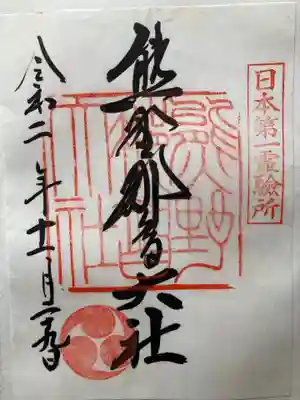 日本第一霊驗所
熊野那智大社
熊野
那智
大社
令和二年十一月